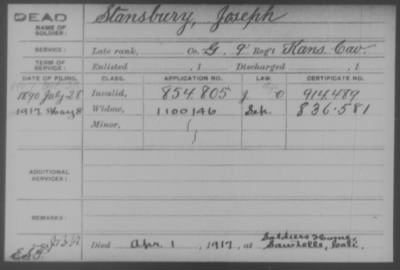 DEAD
NAME OF SOLDIER: Stansbury, Joseph
SERVICE: Late rank, Co. G. 9" Reg't Kans. Cav.
TERM OF SERVICE: Enlisted , 1 Discharged , 1
DATE OF FILING. CLASS. APPLICATION NO. LAW. CERTIFICATE NO.
1890 July 28 Invalid, 854.805 J 914.489
1917 Widow, 1100146 836.581
Minor,
ADDITIONAL SERVICES:
REMARKS:
Died Apr. 1 , 1917, at Soldiers Home,
Sawtelle, Cali.